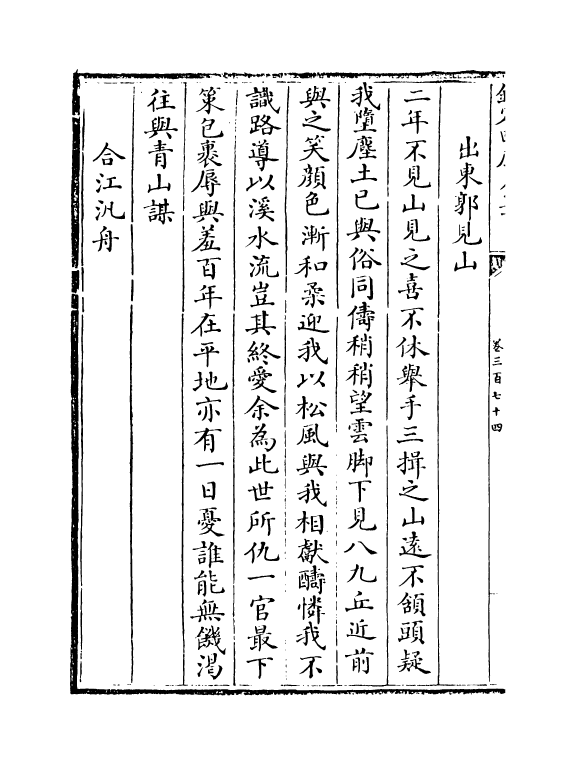 出東郭見山
二年不見山見之喜不休舉手三揖之山遠不頷頭疑
我墮塵土已與俗同儔稍稍望雲脚下見八九丘近前
與之笑顔色漸和柔迎我以松風與我相獻醻憐我不
識路導以溪水流豈其終愛余為此世所仇一官最下
策包裹辱與羞百年在平地亦有一日憂誰能無饑渴
往與青山謀
合江汎舟
卷三百七十四